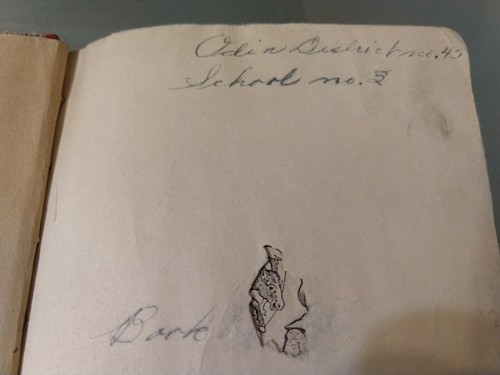 Odin District no. 43
School no. 3
Book